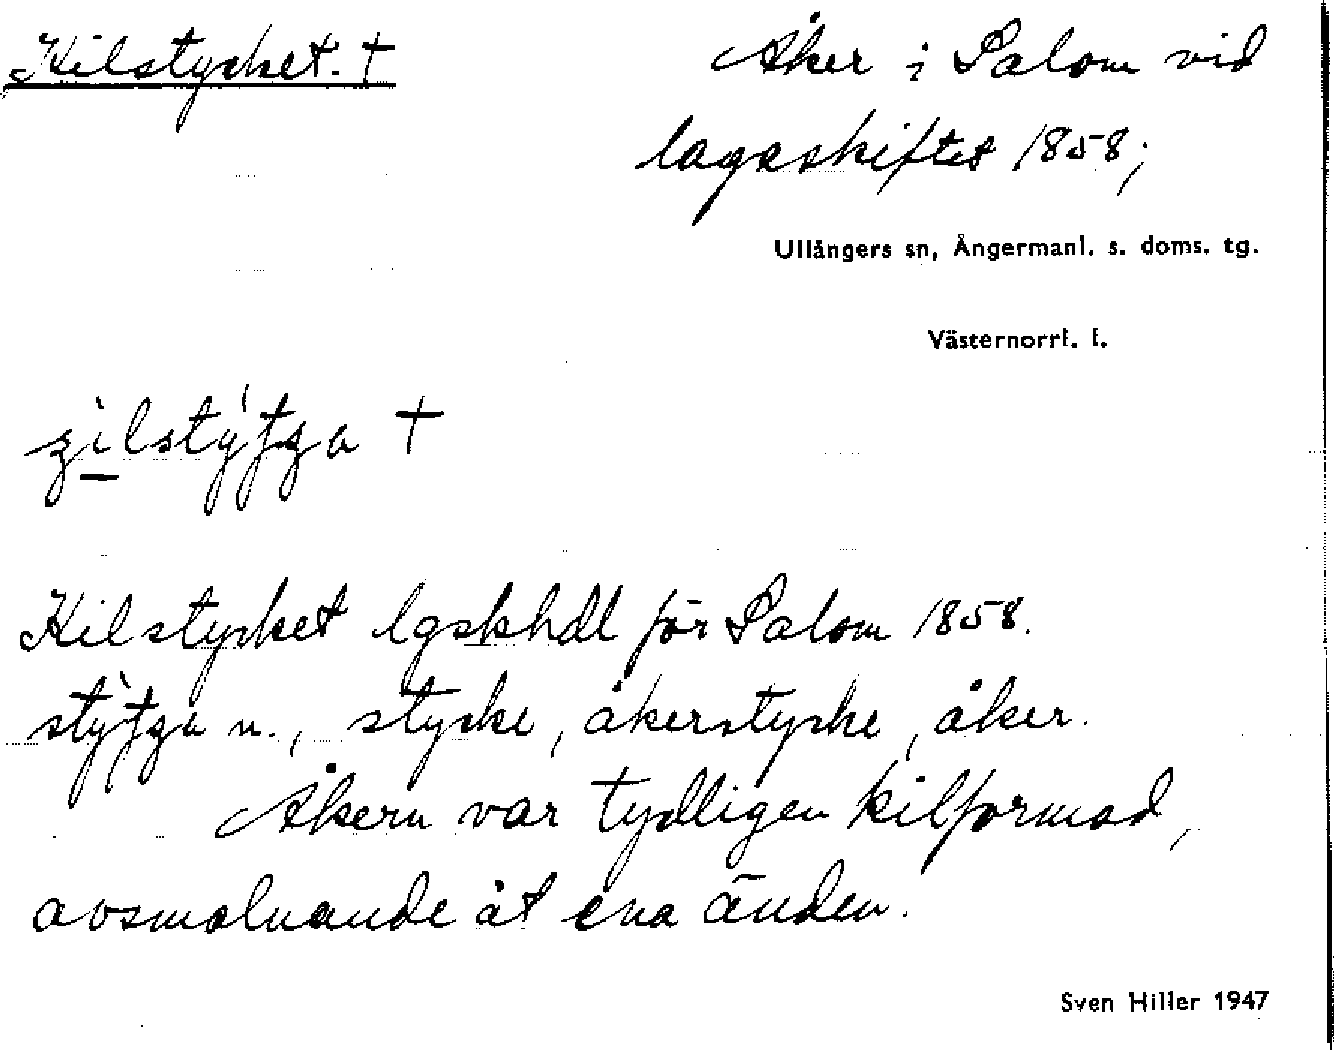 Kilstycket. †
Åker i Salom vid
lagaskiftet 1858;
Ullångers sn, Ångermanl. s. doms. tg.
Västernorrl. l.
†
Kilstycket lgskhdl för Salom 1858.
n., stycke, åkerstycke, åker.
Åkern var tydligen kilformad,
avsmalnande åt ena änden.
Sven Hiller 1947